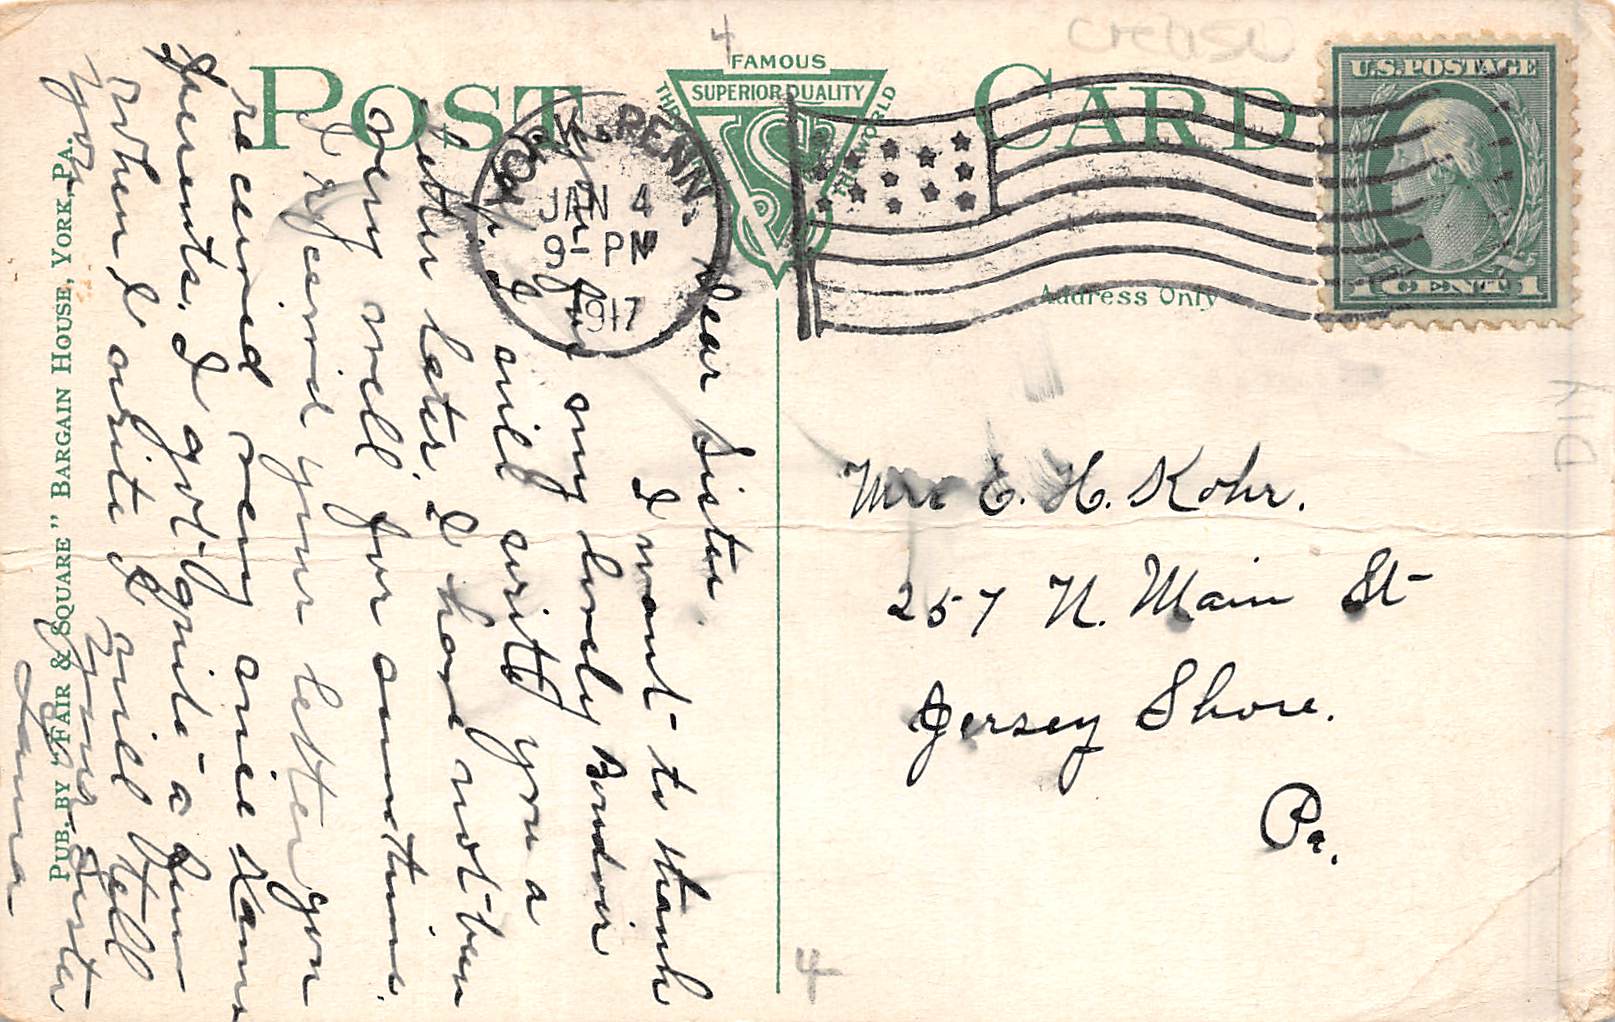 POST CARD
FAMOUS
SUPERIOR QUALITY
THE WORLD
YORK, PENN.
JAN 4
9-PM
1917
U.S. POSTAGE
1 CENT 1
Address Only
crease
DIV
4
4
Mrs E. H. Kohr.
257 N. Main St
Jersey Shore.
Pa.
Dear Sister.
I want to thank
you for my lovely Boudoir
I will write you a
letter later, I have not been
very well for sometime.
I received your letter you
received many nice Xams
Presents. I got quite a few
when I write I will tell
you.
your Sister
PUB. BY "FAIR & SQUARE" BARGAIN HOUSE, YORK, PA.